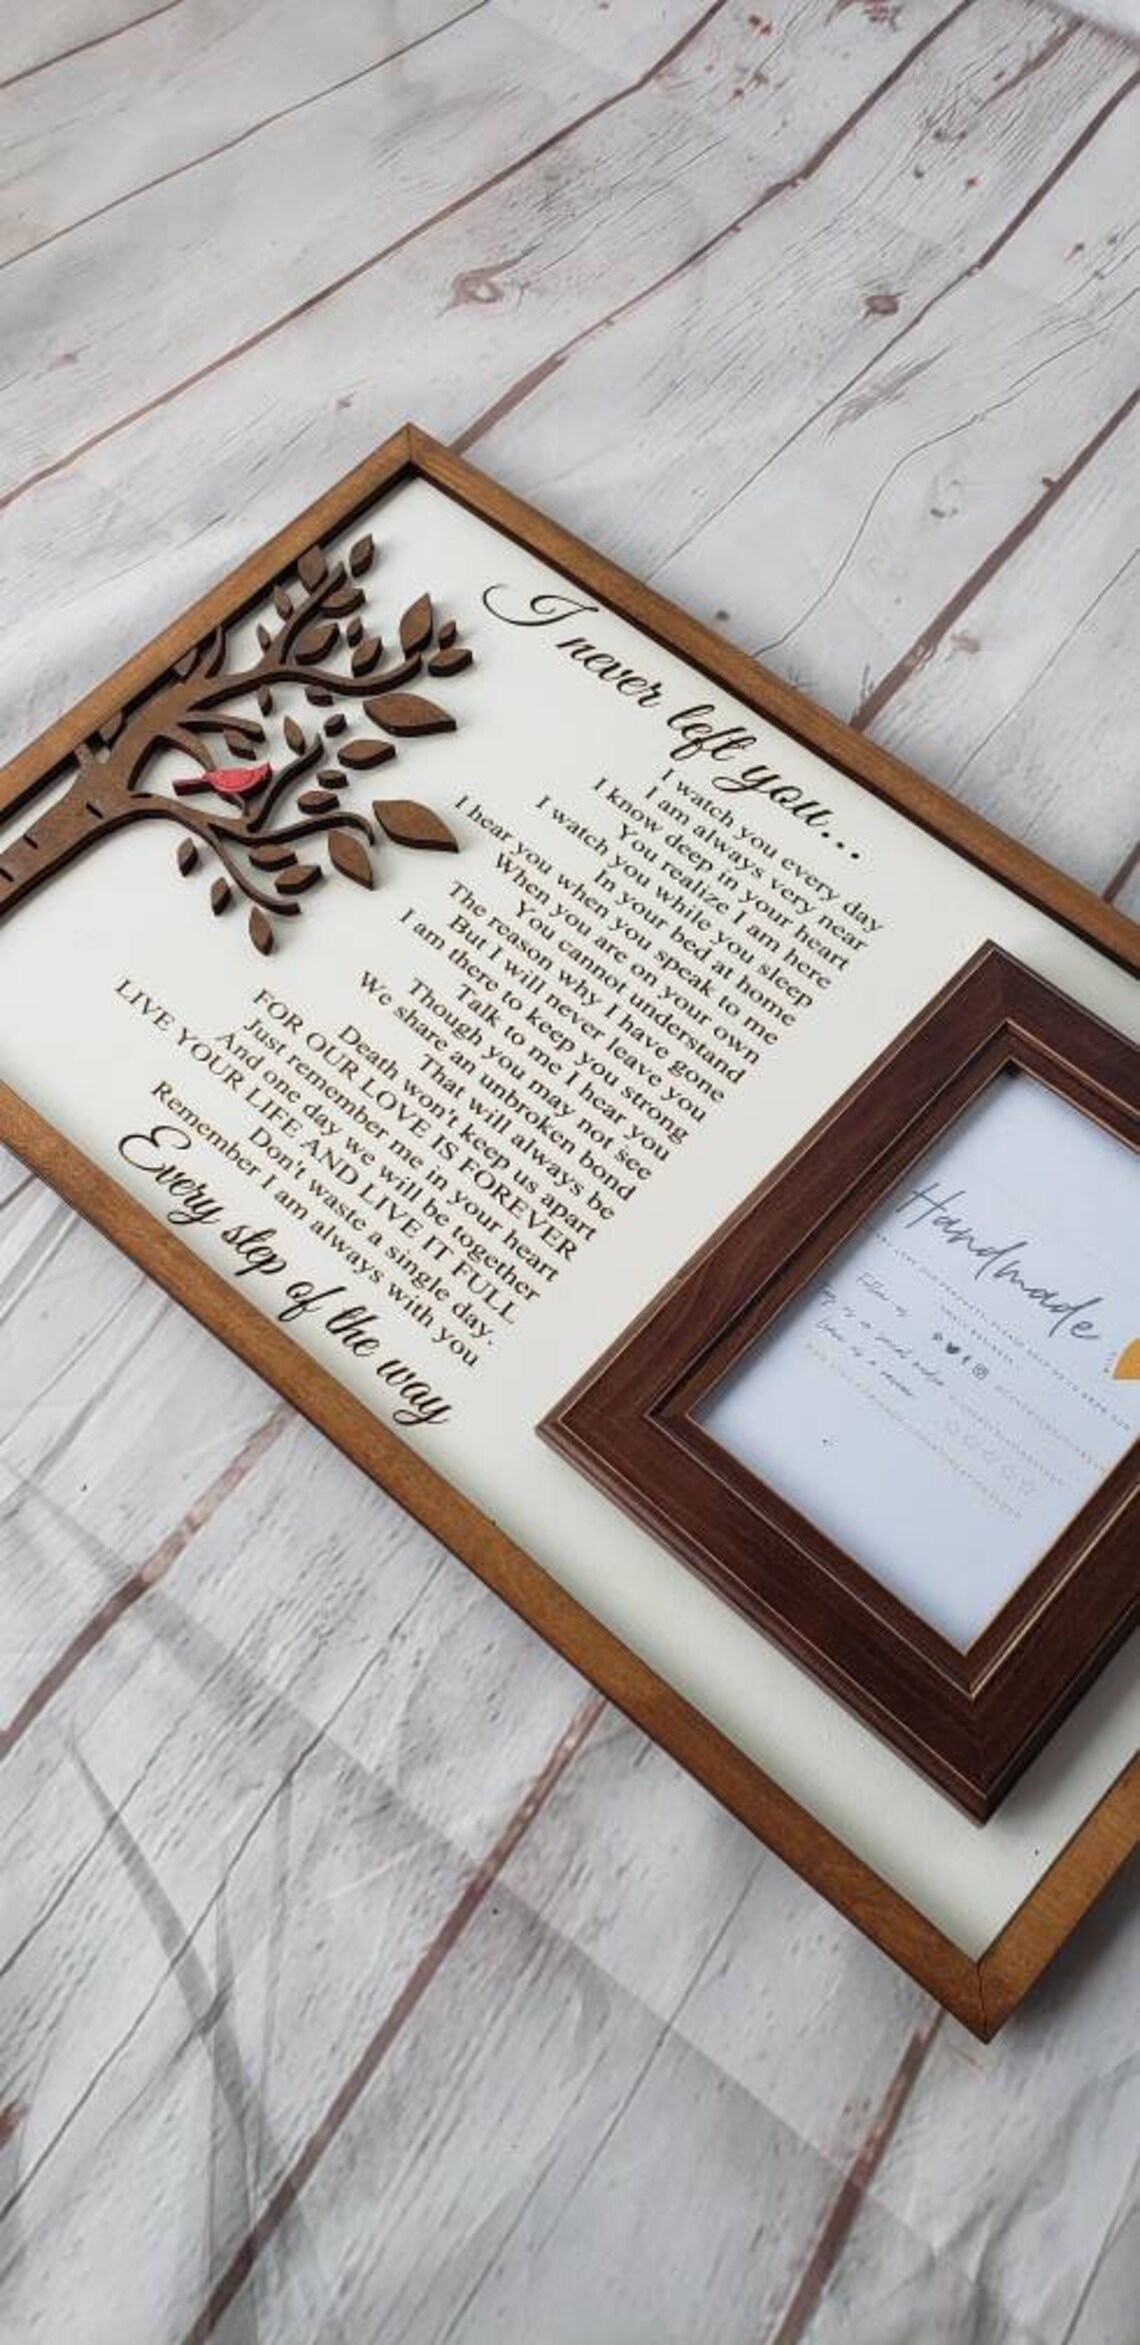 I never left you...
I watch you every day
I am always very near
I know deep in your heart
You realize I am here
I watch you while you sleep
In your bed at home
I hear you when you speak to me
When you are on your own
You cannot understand
The reason why I have gone
But I will never leave you
I am there to keep you strong
Talk to me I hear you
Though you may not see
We share an unbroken bond
That will always be
Death won't keep us apart
FOR OUR LOVE IS FOREVER
Just remember me in your heart
And one day we will be together
LIVE YOUR LIFE AND LIVE IT FULL
Don't waste a single day.
Remember I am always with you
Every step of the way
Handmade